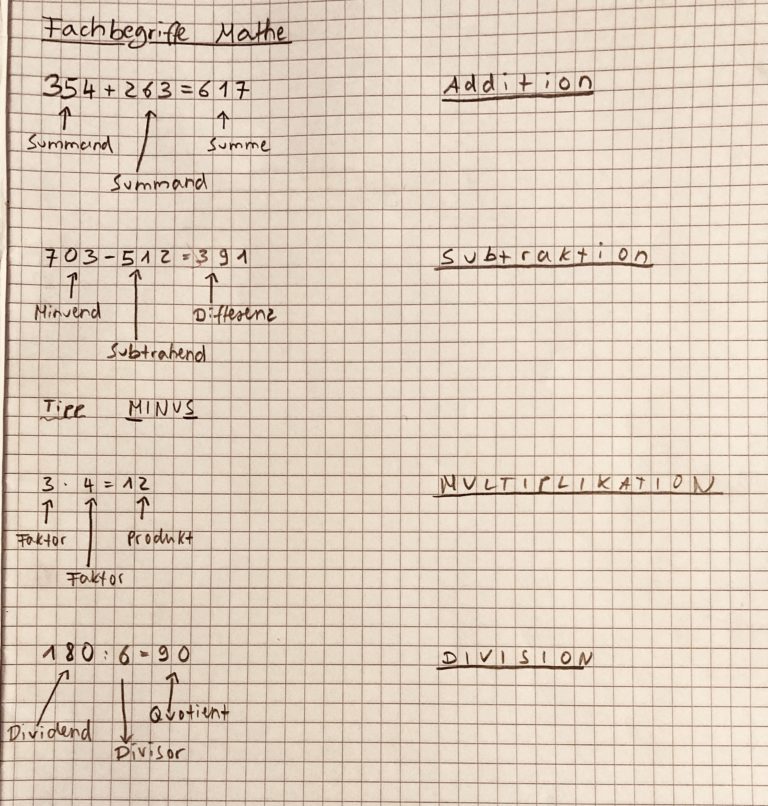 Fachbegriffe Mathe
354 + 263 = 617 Addition
Summand Summe
Summand
703 - 512 = 391 Subtraktion
Minuend Differenz
Subtrahend
Tipp MINUS
3 · 4 = 12 MULTIPLIKATION
Faktor Produkt
Faktor
180 : 6 = 90 DIVISION
Quotient
Dividend
Divisor